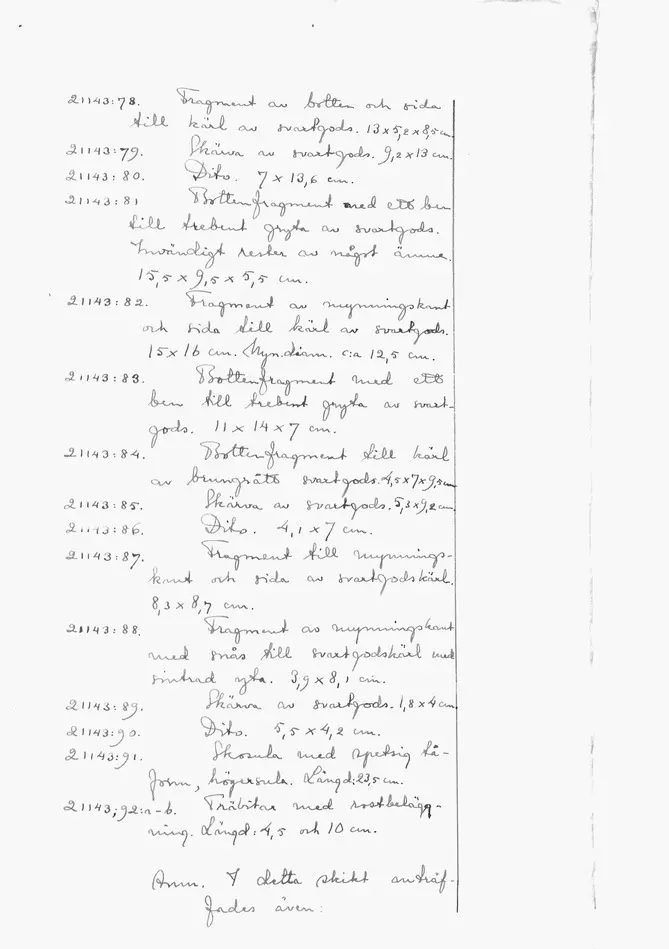 21143:78. Fragment av botten och sida
till kärl av svartgods. 13 x 5,2 x 8,5 cm.
21143:79. Skärva av svartgods. 9,2 x 13 cm.
21143:80. Dito. 7 x 13,6 cm.
21143:81 Bottenfragment med ett ben
till trebent gryta av svartgods.
Invändigt rester av något ämne.
15,5 x 9,5 x 5,5 cm.
21143:82. Fragment av mynningskant
och sida till kärl av svartgods.
15 x 16 cm. Myn.diam. c:a 12,5 cm.
21143:83. Bottenfragment med ett
ben till trebent gryta av svart-
gods. 11 x 14 x 7 cm.
21143:84. Bottenfragment till kärl
av brungrått svartgods. 4,5 x 7 x 9,5 cm
21143:85. Skärva av svartgods. 5,3 x 9,2 cm.
21143:86. Dito. 4,1 x 7 cm.
21143:87. Fragment till mynnings-
kant och sida av svartgodskärl.
8,3 x 8,7 cm.
21143:88. Fragment av mynningskant
med snås till svartgodskärl med
sintrad yta. 3,9 x 8,1 cm.
21143:89. Skärva av svartgods. 1,8 x 4 cm.
21143:90. Dito. 5,5 x 4,2 cm.
21143:91. Skosula med spetsig tå-
form, högersula. Längd: 23,5 cm.
21143;92:a-b. Träbitar med rostbelägg-
ning. Längd: 4,5 och 10 cm.
Anm. I detta skikt anträf-
fades även: